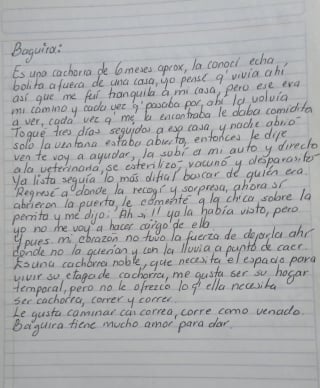 Baguira:
Es una cachorra de 6 meses aprox, la conocí echa
bolita afuera de una casa, yo pensé q' vivía ahí
así que me fui tranquila a mi casa, pero ese era
mi camino y cada vez q' pasaba por ahí la volvía
a ver, cada vez q' me la encontraba le daba comidita
Toqué tres días seguidos a esa casa, y nadie abrió
solo la ventana estaba abierta, entonces le dije
ven te voy a ayudar, la subí a mi auto y directo
a la veterinaria, se esterilizó, vacunó y desparasitó
Ya lista seguía lo más difial buscar de quién era.
Regresé a donde la recogí y sorpresa, ahora sí
abrieron la puerta, le comenté a la chica sobre la
perrita y me dijo: Ah sí!! ya la había visto, pero
yo no me voy a hacer cargo de ella
Y pues mi corazón no tuvo la fuerza de dejarla ahí
donde no la querían y con la lluvia a punto de caer.
Es una cachorra noble, que necesita el espacio para
vivir su etapa de cachorra, me gusta ser su hogar
temporal, pero no le ofrezco lo q' ella necesita
Ser cachorra, correr y correr.
Le gusta caminar con correa, corre como venado.
Baguira tiene mucho amor para dar.